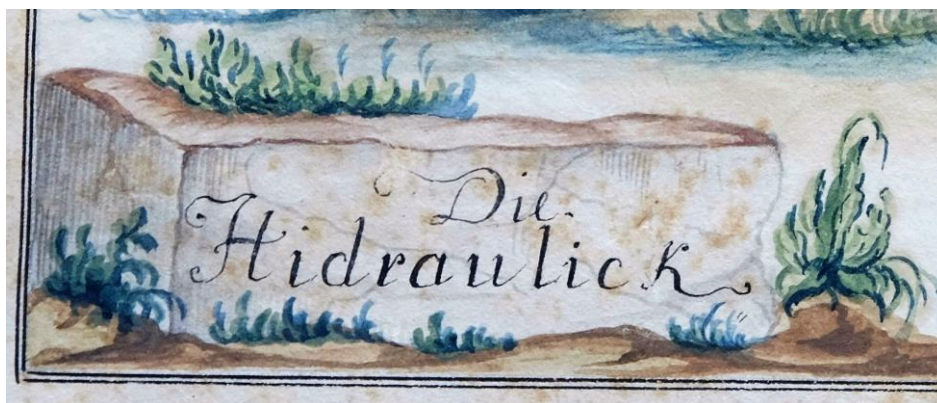 Die.
Hidraulick